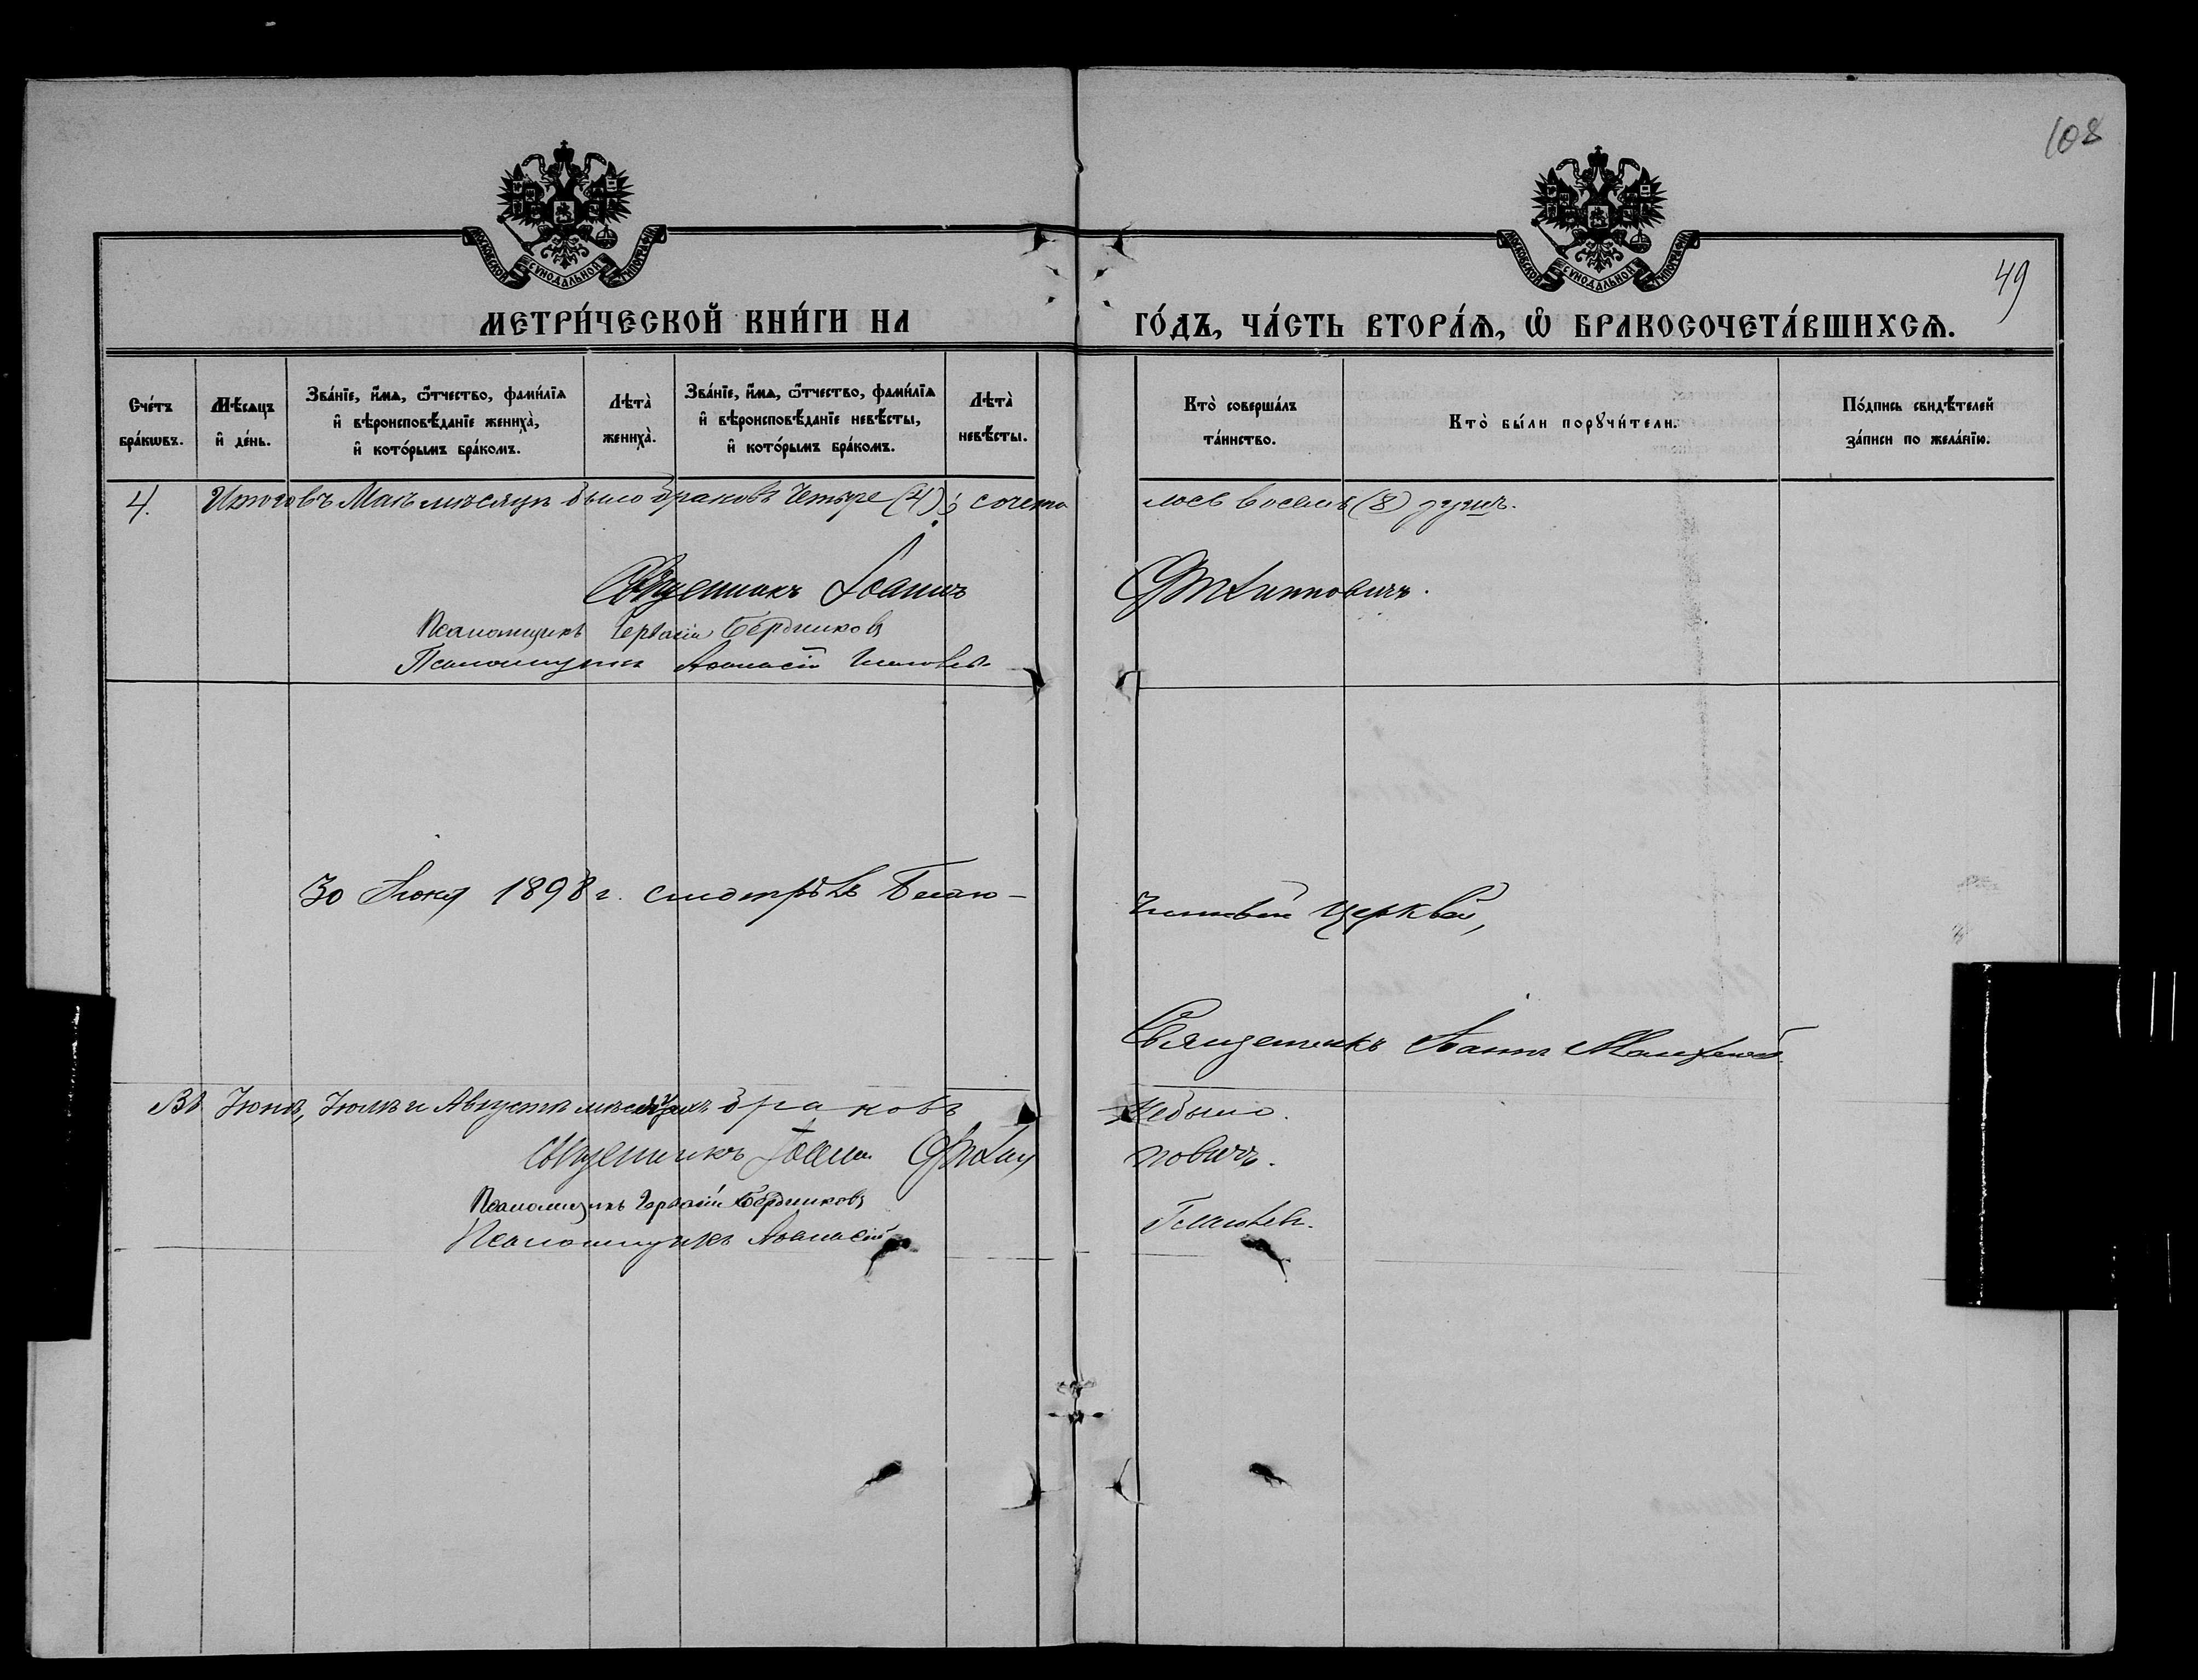 108
49
МОСКОВСКОЙ СУНОДАЛЬНОЙ ТИПОГРАФІИ
МОСКОВСКОЙ СУНОДАЛЬНОЙ ТИПОГРАФІИ
МЕТРИ́ЧЕСКОЙ КНИ́ГИ НА ГО́ДЪ, ЧА́СТЬ ВТОРА́Ѧ, Ѡ҆ БРАКОСОЧЕТА́ВШИХСѦ.
Сче́тъ бра́кѡвъ.
Мѣ́сѧцъ и҆ де́нь.
Зва́нїе, и҆́мѧ, ѻ҆́тчество, фами́лїѧ и҆ вѣроисповѣ́данїе жениха̀, и҆ кото́рымъ бра́комъ.
Лѣта̀ жениха̀.
Зва́нїе, и҆́мѧ, ѻ҆́тчество, фами́лїѧ и҆ вѣроисповѣ́данїе невѣ́сты, и҆ кото́рымъ бра́комъ.
Лѣта̀ невѣ́сты.
Кто̀ соверша́лъ та́инство.
Кто̀ бы́ли порꙋчи́тели.
По́дпись свидѣ́телей за́писи по жела́нїю.
4. Итого въ Маѣ мѣсяцѣ было браковъ Четыре (4); сочета лось восемь (8) душъ.
Священникъ Іоаннъ
Псаломщикъ Бердниковъ
Псаломщикъ Аѳанасій
30 Іюня 1898 г. смотрѣлъ церквей,
Священникъ Іоаннъ
Въ Іюнѣ, Іюлѣ и Августѣ мѣсяцахъ браковъ небыло.
Священникъ Іоаннъ
Псаломщикъ Бердниковъ
Псаломщикъ Аѳанасій